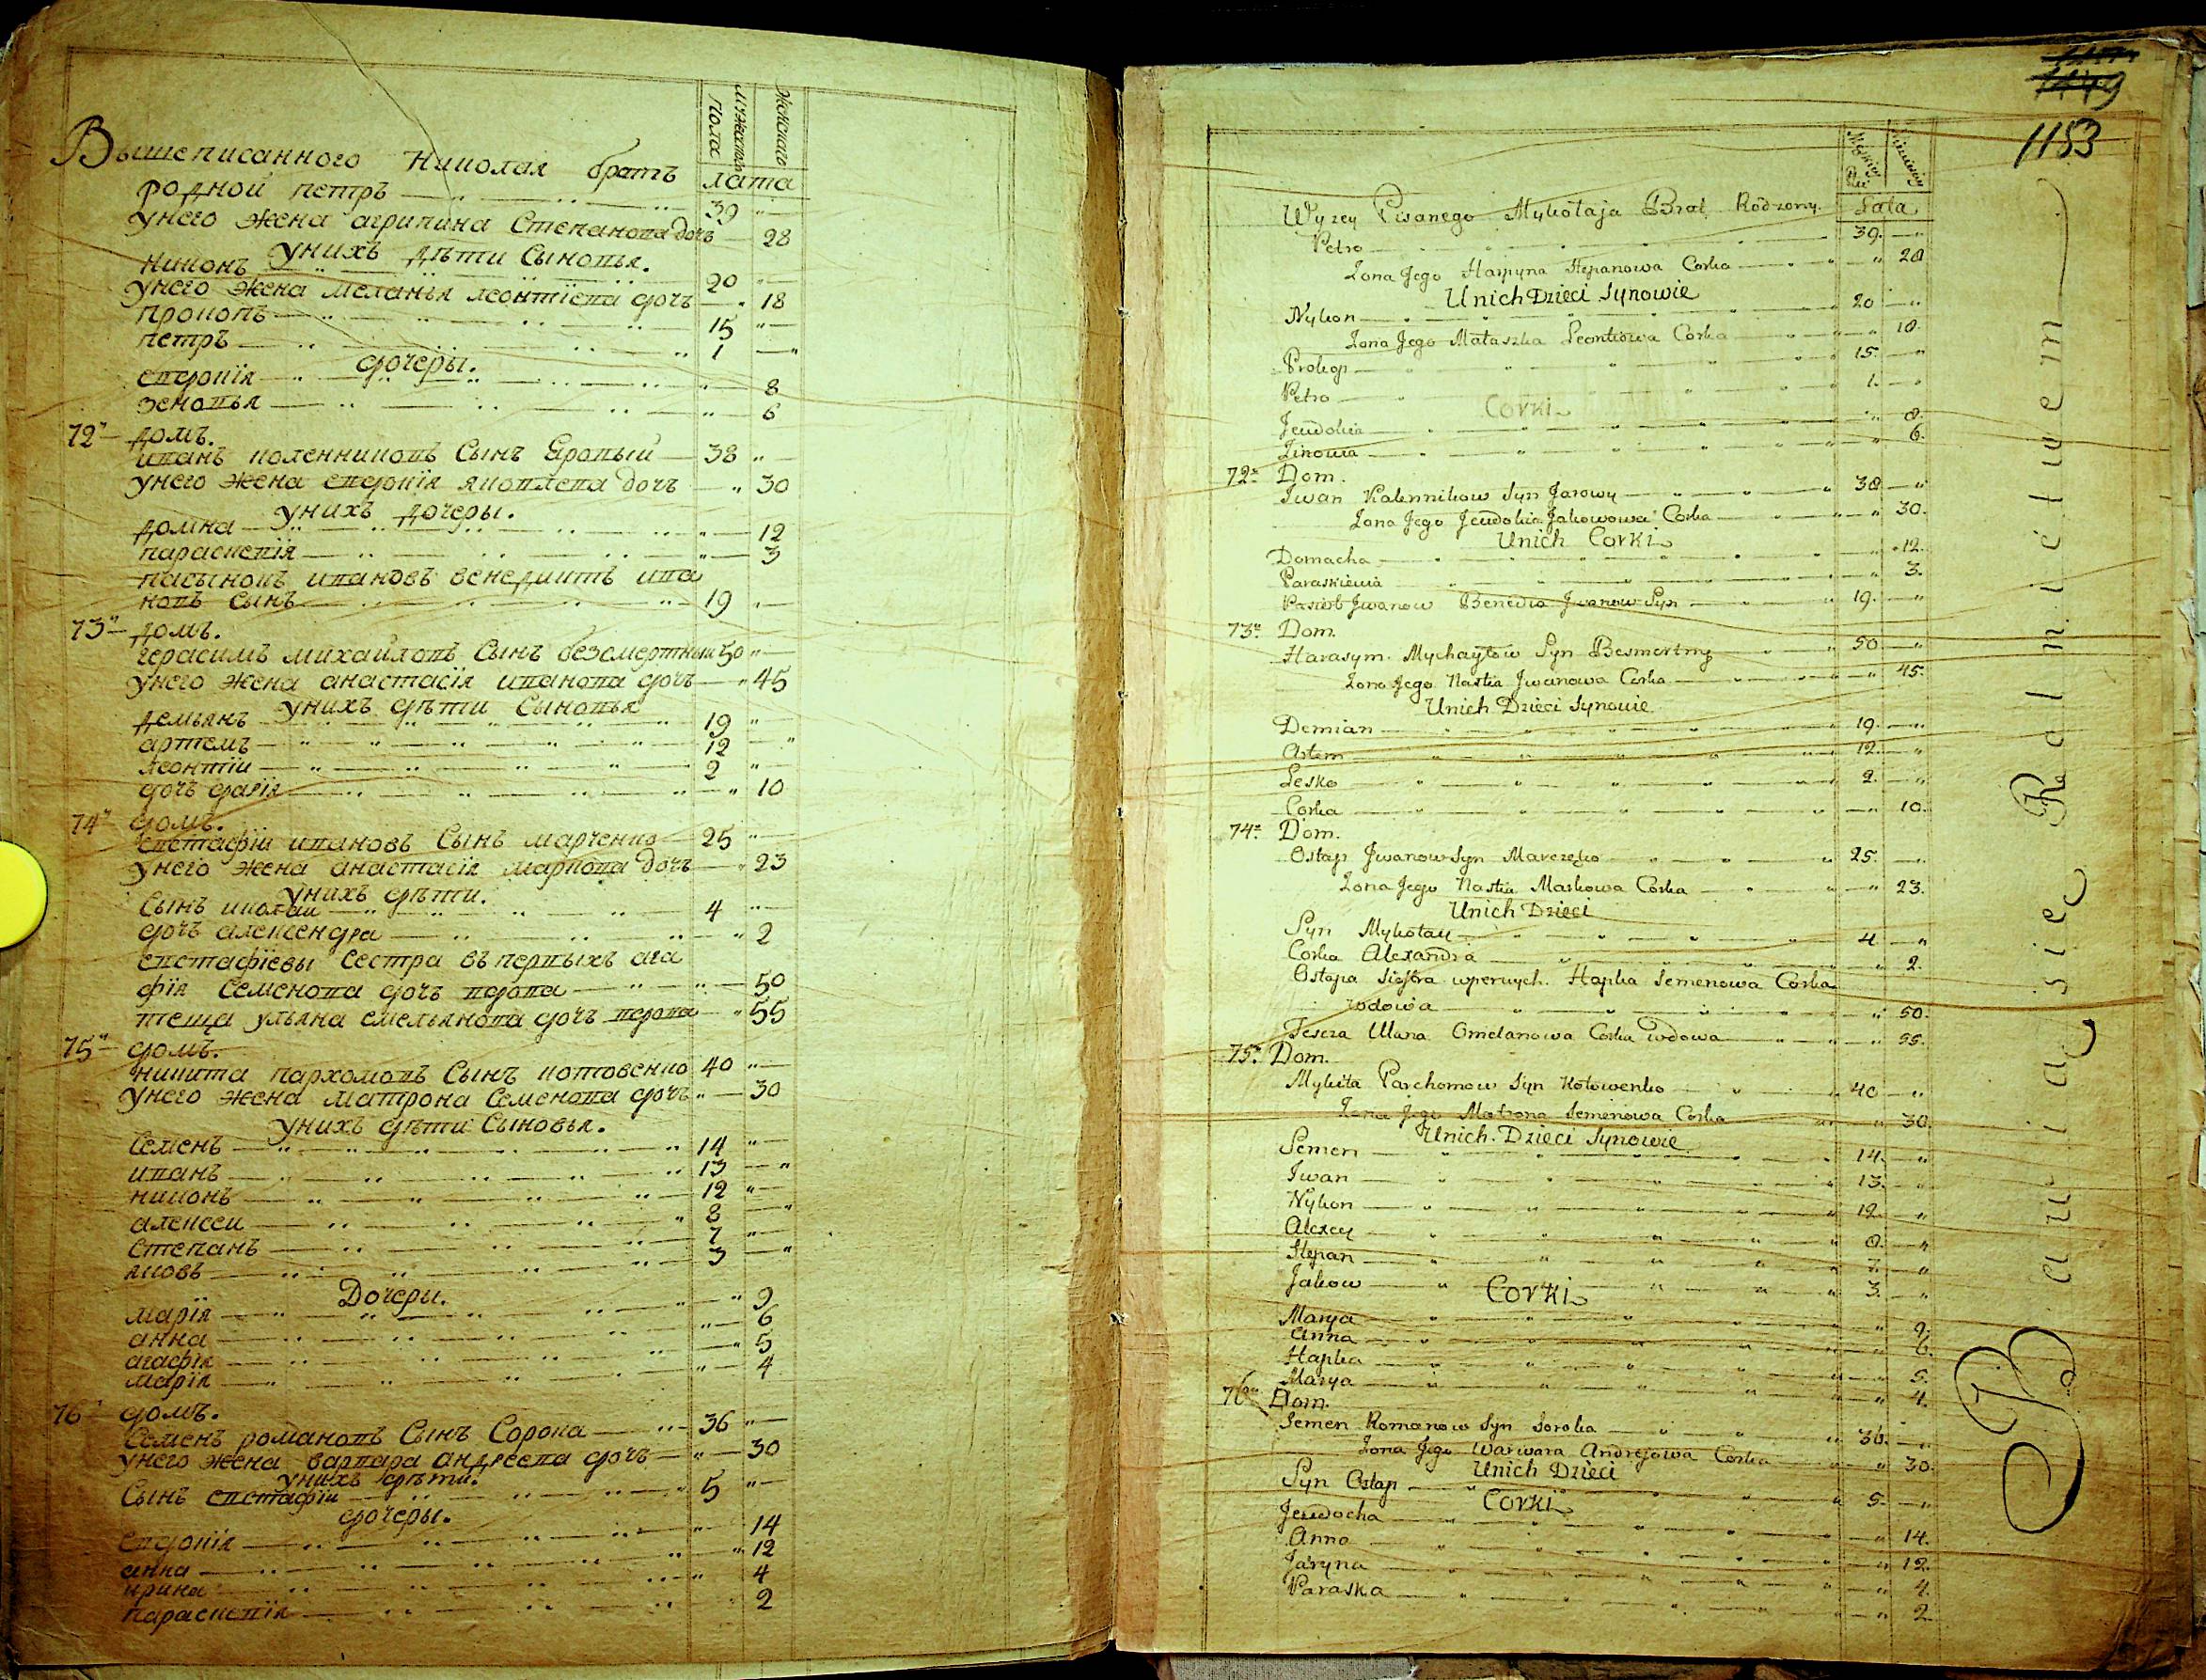 мужеска
пола
женскаго
лата
Вышеписанного Николая братъ
родной петръ 39
унего жена агрипина Степанова дочь 28
унихъ дѣти Сыновья.
никонъ 20
унего жена меланья леонтіева дочь 18
прокопъ 15
петръ 1
дочеры.
евдокія 8
зеновья 6
72 домъ.
иванъ каленниковъ Сынъ Яровый 38
унего жена евдокія яковлева дочь 30
унихъ дочеры.
домна 12
параскевія 3
пасынокъ ивановъ венедиктъ ива
новъ Сынъ 19
73 домъ.
герасимъ михайловъ Сынъ безсмертный 50
унего жена анастасія иванова дочь 45
унихъ дѣти Сыновья
демьянъ 19
артемъ 12
леонтіи 2
дочь дарія 10
74 домъ.
евстафіи ивановъ Сынъ марченко 25
унего жена анастасія маркова дочь 23
унихъ дѣти.
Сынъ николаи 4
дочь александра 2
евстафіевы Сестра въ первыхъ ага
фія Семенова дочь вдова 50
теща ульяна емельянова дочь вдова 55
75 домъ.
никита пархомовъ Сынъ котовенко 40
унего жена матрона Семенова дочь 30
унихъ дѣти Сыновья.
Семенъ 14
иванъ 13
никонъ 12
алексеи 8
Степанъ 7
яковъ 3
Дочеры.
марія 9
анна 6
агафія 5
марія 4
76 домъ.
Семенъ романовъ Сынъ Сорока 36
унего жена варвара андреева дочь 30
унихъ дѣти.
Сынъ евстафіи 5
дочеры.
евдокія 14
анна 12
ирина 4
параскевія 2
1153
Lata
Wyzey Pisanego Mykołaja Brat Rodzony.
Petro 39.
Zona Jego Harpyna Stepanowa Corka 28
Unich Dzieci Synowie
Nykon 20
Zona Jego Małaszka Leontiowa Corka 18.
Prokop 15.
Petro 1.
Corki
Jewdokia 8.
Zinowia 6.
72. Dom.
Jwan Kalennikow Syn Jarowy 38
Zona Jego Jewdokia Jakowowa Corka 30.
Unich Corki
Domacha 12.
Paraskiewia 3.
Pasierb Jwanow Benedio Jwanow Syn 19.
73. Dom.
Harasym Mychayłow Syn Besmertny 50
Zona Jego Nastia Jwanowa Corka 45.
Unich Dzieci Synowie
Demian 19.
Artem 12.
Lesko 2.
Corka 10.
74. Dom.
Ostap Jwanow Syn Marczenko 25.
Zona Jego Nastia Markowa Corka 23.
Unich Dzieci
Syn Mykołay 4
Corka Alexandra 2.
Ostapa Siostra wperwych Hapka Semenowa Corka
wdowa 50.
Tescza Ulana Omelanowa Corka wdowa 55.
75. Dom.
Mykita Parchomow Syn Kotowenko 40
Zona Jego Matrona Semenowa Corka 30.
Unich Dzieci Synowie
Semen 14.
Jwan 13.
Nykon 12.
Alexey 8.
Stepan 7.
Jakow 3.
Corki
Marya 9.
Anna 6.
Hapka 5.
Marya 4.
76 Dom.
Semen Romanow Syn Soroka 36.
Zona Jego Warwara Andrejowa Corka 30.
Unich Dzieci
Syn Ostap 5.
Corki
Jewdocha 14.
Anna 12.
Jaryna 4.
Paraska 2